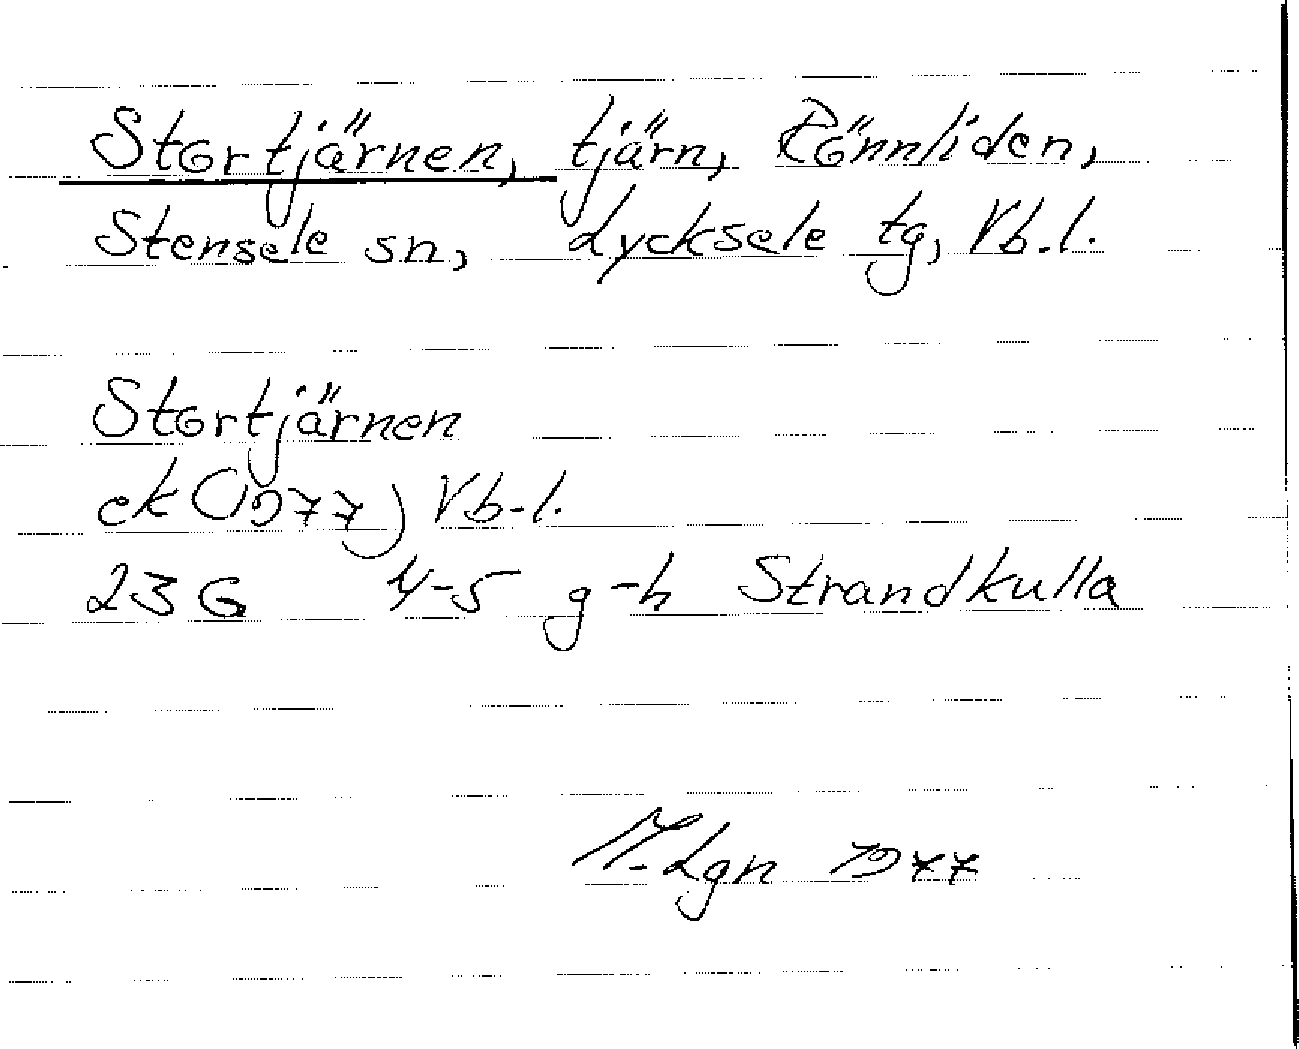 Stortjärnen, tjärn, Rönnliden,
Stensele sn, Lycksele tg, Vb.l.
Stortjärnen
ek (1977) Vb.l.
23 G 4-5 g-h Strandkulla
M.Lgn 1977